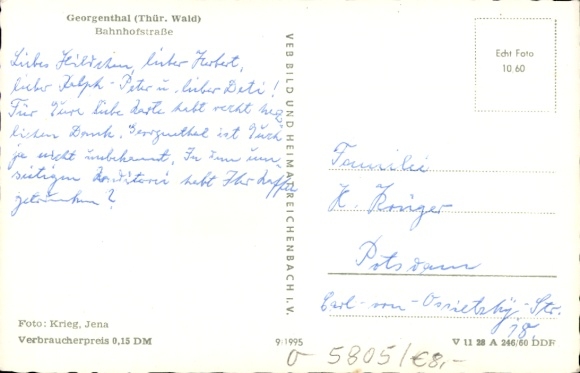 Georgenthal (Thür. Wald)
Bahnhofstraße
Liebes Hildchen, lieber Herbert,
lieber Ralph-Peter u. lieber Deti!
Für Eure liebe Karte habt recht herz-
lichen Dank. Georgenthal ist Euch
ja nicht unbekannt. In dem um-
seitigen Konditorei habt Ihr Kaffee
getrunken?
VEB BILD UND HEIMAT REICHENBACH I. V.
Echt Foto
10 60
Familie
K. Krüger
Potsdam
Carl-von-Ossietzky-Str.
18
Foto: Krieg, Jena
Verbraucherpreis 0,15 DM
9/1995
V 11 28 A 246/60 DDR
5805/€8,-